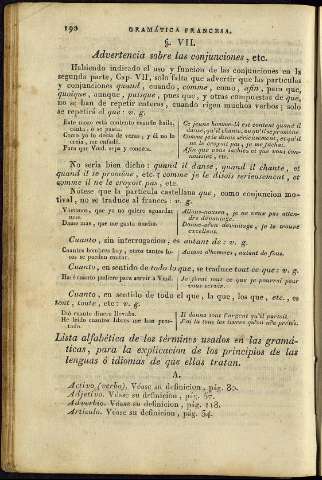 190 GRAMÁTICA FRANCESA.
§. VII.
Advertencia sobre las conjunciones, etc.
Habiendo indicado el uso y funcion de las conjunciones en la
segunda parte, Cap. VII, solo falta que advertir que las partículas
y conjunciones quand, cuando; comme, como, afin, para que,
quoique, aunque, puisque, pues que, y otras compuestas de que,
no se han de repetir enteras, cuando rigen muchos verbos; solo
se repetirá el que: v. g.
Este mozo está contento cuando baila,
canta, ó se pasea.
Como yo lo decia de veras, y él no lo
creia, me enfadé.
Para que Vmd. sepa y conozca.
Ce jeune homme-là est content quand il
danse, qu'il chante, ou qu'il se promène.
Comme je le disois sérieusement, et qu'il
ne le croyoit pas, je me fâchai.
Afin que vous sachiez et que vous connoissiez, etc.
No seria bien dicho: quand il danse, quand il chante, et
quand il se promène, etc.; comme je le disois serieusement, et
comme il ne le croyoit pas, etc.
Nótese que la partícula castellana que, como conjuncion motival,
no se traduce al frances: v. g.
Vámonos, que ya no quiero aguardar
mas.
Dame mas, que me gusta mucho.
Allons-nous-en, je ne veux pas attendre
davantage.
Donne-m'en davantage, je le trouve
excellent.
Cuanto, sin interrogacion, es autant de: v. g.
Cuantos hombres hay, otros tantos
se puedan matar.
Autant d'hommes, autant de fous.
Cuanto, en sentido de todo lo que, se traduce tout ce que: v. g.
Haré cuanto pudiere para servir á Vmd.
Je ferai tout ce que je pourrai pour
vous servir.
Cuanto, en sentido de todo el que, la que, los que, etc., es
tout, toute, etc.: v. g.
Dió cuanto dinero llevaba.
He leido cuantos libros me han prestado.
Il donna tout l'argent qu'il portoit.
J'ai lu tous les livres qu'on m'a prêtés.
Lista alfabética de los términos usados en las gramáticas,
para la explicacion de los principios de las
lenguas ó idiomas de que ellas tratan.
A.
Activo (verbo). Véase su definicion, pág. 80.
Adjetivo. Véase su definicion, pág. 57.
Adverbio. Véase su definicion, pág. 118.
Artículo. Véase su definicion, pág. 54.